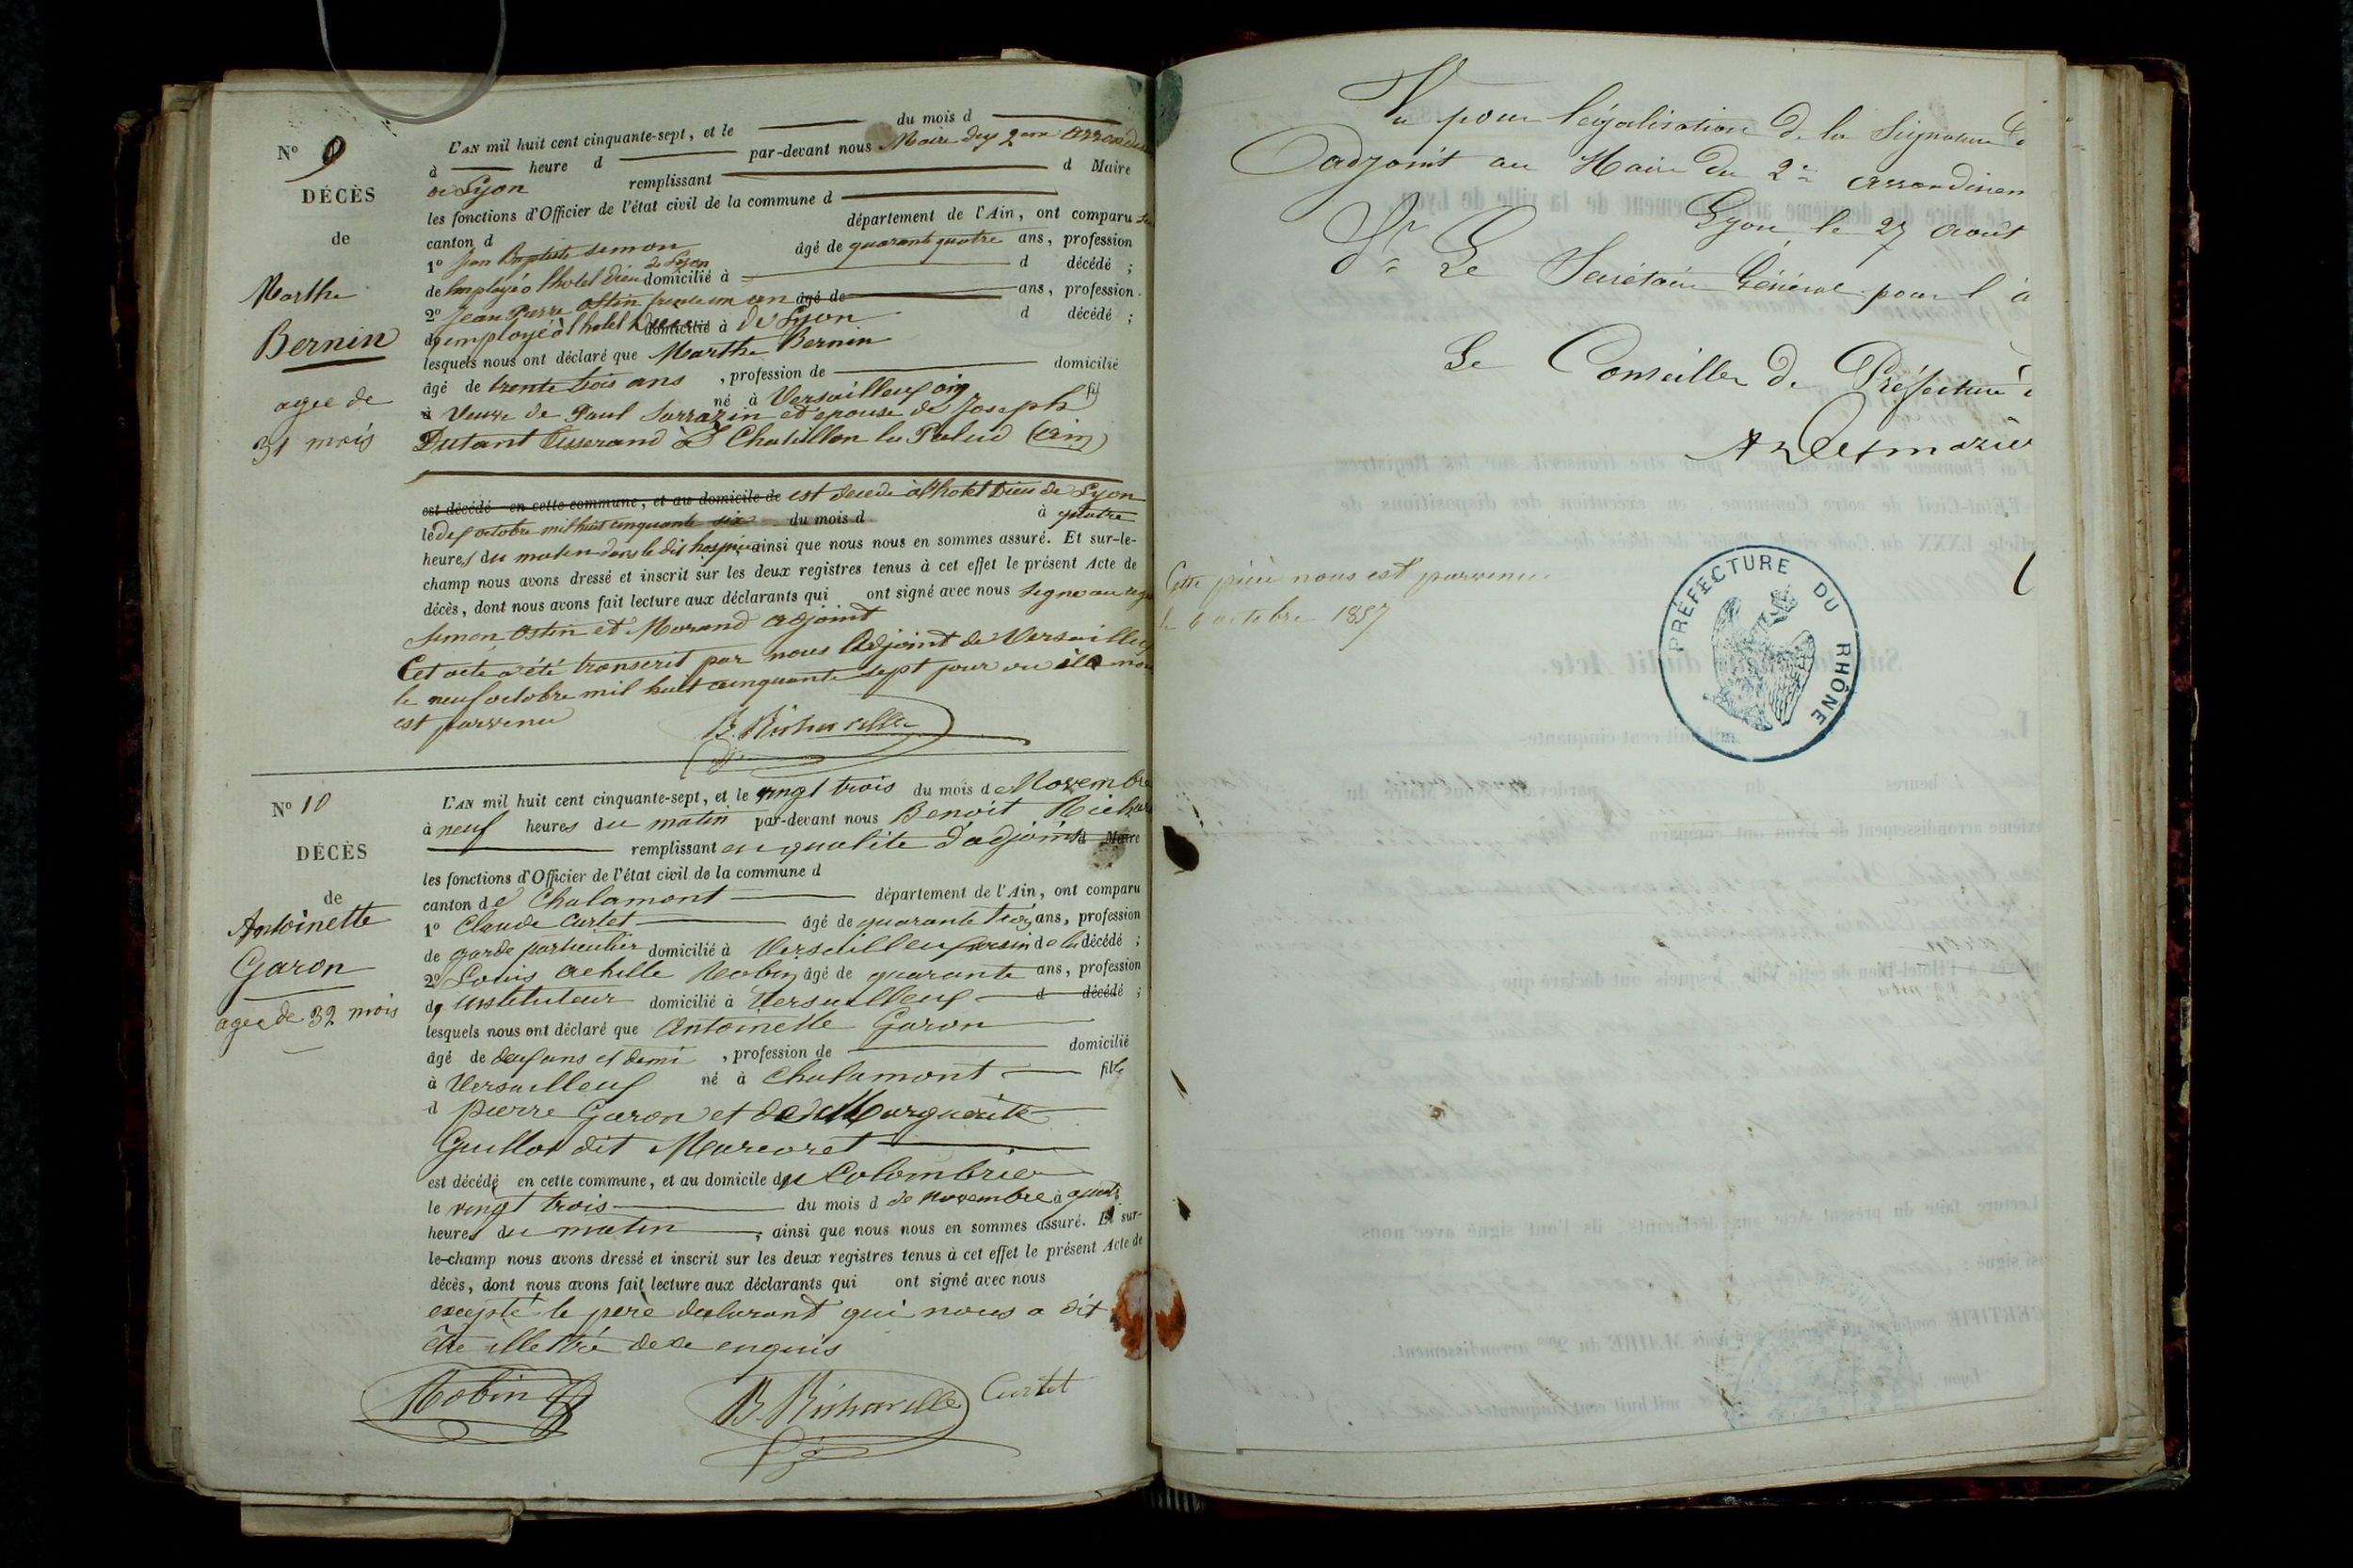 N° 9
DÉCÈS
de
Marthe
Bernin
agee de
31 mois
L'AN mil huit cent cinquante-sept, et le du mois d
à heure d par-devant nous Maire du 2eme
de Lyon remplissant d Maire
les fonctions d'Officier de l'état civil de la commune d
canton d département de l'Ain, ont comparu
1° Jean Baptiste Simon âgé de quarante quatre ans, profession
de Employé à l'hotel Dieu de Lyon domicilié à d décédé ;
2° Jean Pierre Ostin trente un an âgé de ans, profession
de employé à l'hotel Dieu domicilié à de Lyon d décédé ;
lesquels nous ont déclaré que Marthe Bernin
âgé de trente trois ans , profession de domicilié
à né à Versailleux ain fil
Veuve de Paul Sarrazin et epouse de Joseph
Dutant tisserand à Chatillon la Palud (ain)
est décédé en cette commune, et au domicile de est decede à l'hotel Dieu de Lyon
le dix octobre mil huit cinquante six du mois d à quatre
heures du matin dans le dit hospice ainsi que nous nous en sommes assuré. Et sur-le-
champ nous avons dressé et inscrit sur les deux registres tenus à cet effet le présent Acte de
décès, dont nous avons fait lecture aux déclarants qui ont signé avec nous Signe au
Simon, Ostin et Morand adjoint
Cet acte a été transcrit par nous l'adjoint de Versailleux
le neuf octobre mil huit cinquante sept jour ou il
est parvenu
N° 10
DÉCÈS
de
Antoinette
Garon
agee de 32 mois
L'AN mil huit cent cinquante-sept, et le vingt trois du mois de Novembre
à neuf heures du matin par-devant nous Benoit
remplissant en qualite d'adjoint d Maire
les fonctions d'Officier de l'état civil de la commune d
canton de Chalamont département de l'Ain, ont comparu
1° Claude Curtet âgé de quarante trois ans, profession
de garde particulier domicilié à Versailleux voisin de la décédé ;
2° Louis Achille Robin âgé de quarante ans, profession
de instituteur domicilié à Versailleux d décédé ;
lesquels nous ont déclaré que Antoinette Garon
âgé de deux ans et demi , profession de domicilié
à Versailleux né à Chalamont fille
d pierre Garon et de Marguerite
Guillot dit
est décédé en cette commune, et au domicile du Colombier
le vingt trois du mois d de Novembre à quatre
heures du matin , ainsi que nous nous en sommes assuré. Et sur-
le-champ nous avons dressé et inscrit sur les deux registres tenus à cet effet le présent Acte de
décès, dont nous avons fait lecture aux déclarants qui ont signé avec nous
excepté le père declarant qui nous a dit
être illettré de ce enquis
Robin B. Curtet
Vu pour légalisation de la Signature de
adjoint au Maire du 2e
Lyon, le 27 Août
Le Secrétaire Général pour l'a
Le Conseiller de Préfecture
Cette pièce nous est parvenue
le 6 octobre 1857
PRÉFECTURE DU RHÔNE